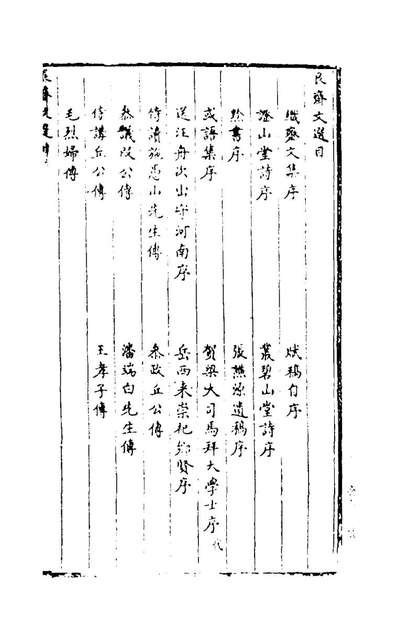 艮齋文選目
織齋文集序 焚稿自序
證山堂詩序 叢碧山堂詩序
於書序 張勲源遺稿序
或語集序 賀梁大司馬拜大學士序代
送汪舟次出守河南序 岳西來崇祀鄉賢序
侍讀施愚山先生傳 參政丘公傳
參議段公傳 潘瑞白先生傳
侍講丘公傳 王孝子傳
毛烈婦傳